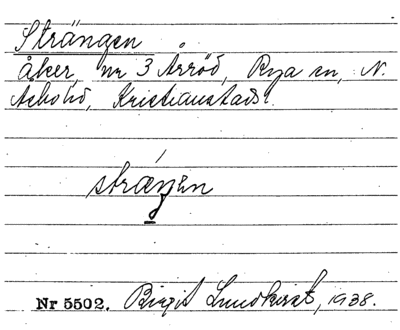 Strängen
åker, nr 3 Årröd, Rya sn, N.
Åsbo hd, Kristianstads l.
stræŋen
Nr 5502. Birgit Lundkvist, 1938.